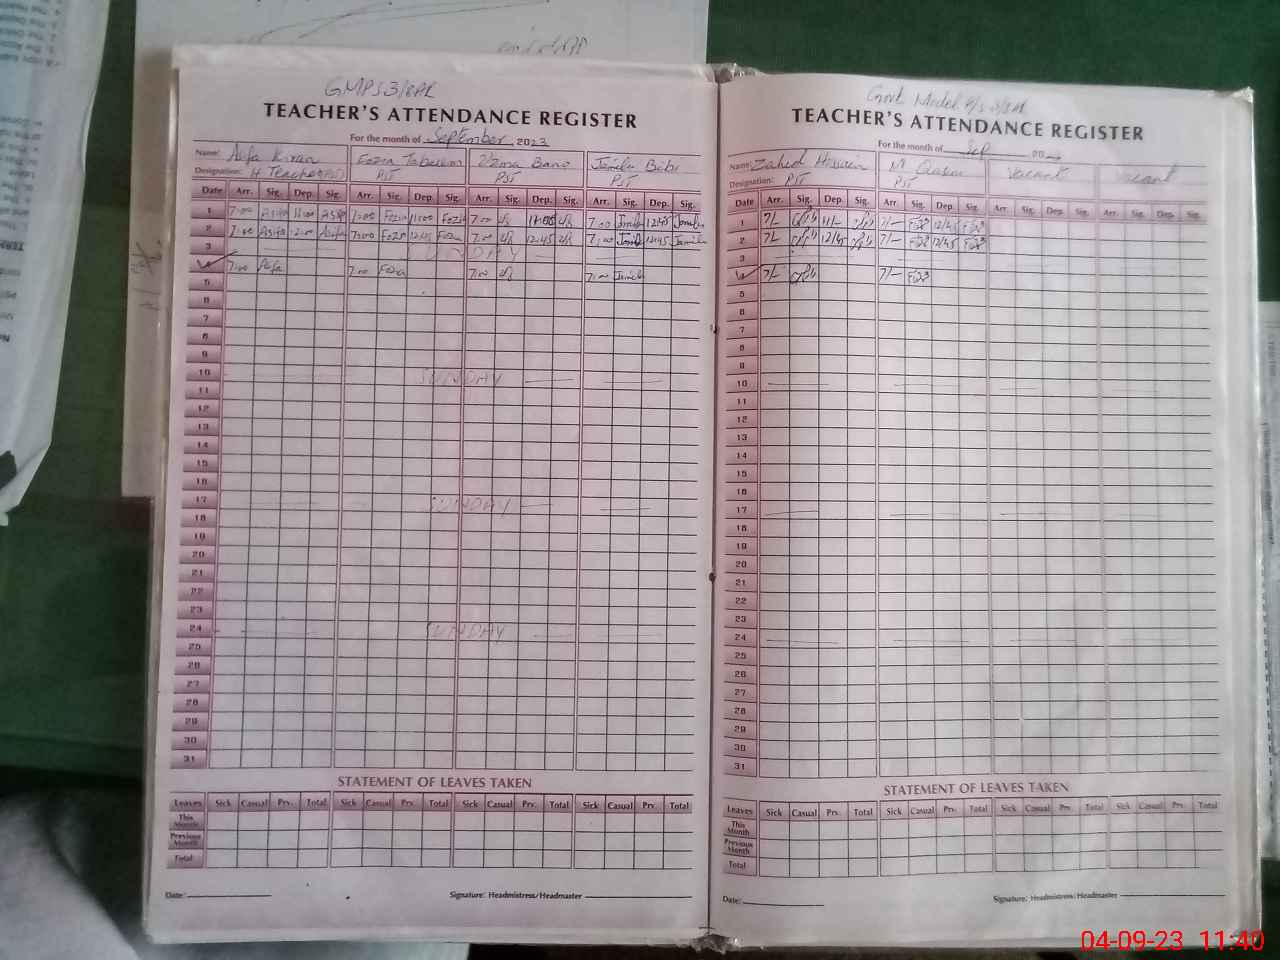 GMPS 3/8AR
TEACHER'S ATTENDANCE REGISTER
For the month of September 2023
Name: Asifa Kiran Fozia Tabassum Uzma Bano Jamila Bibi
Designation: H Teacher PST PST PST
Date Arr. Sig. Dep. Sig. Arr. Sig. Dep. Sig. Arr. Sig. Dep. Sig. Arr. Sig. Dep. Sig.
1 7:00 Asifa 11:00 Asifa 7:00 Fozia 11:00 Fozia 7:00 11:00 7:00 Jamila 12:45 Jamila
2 7:00 Asifa 12:45 Asifa 7:00 Fozia 12:45 Fozia 7:00 12:45 7:00 Jamila 12:45 Jamila
3 SUNDAY
4 7:00 Asifa 7:00 Fozia 7:00 7:00 Jamila
5
6
7
8
9
10 SUNDAY
11
12
13
14
15
16
17 SUNDAY
18
19
20
21
22
23
24 SUNDAY
25
26
27
28
29
30
31
STATEMENT OF LEAVES TAKEN
Leaves Sick Casual Prv. Total Sick Casual Prv. Total Sick Casual Prv. Total Sick Casual Prv. Total
This Month
Previous Month
Total
Date: Signature: Headmistress/Headmaster
Govt. Model P/S 3/8AR
TEACHER'S ATTENDANCE REGISTER
For the month of Sep 20
Name: Zahid Hussain M Qasim Vacant Vacant
Designation: PST PST
Date Arr. Sig. Dep. Sig. Arr Sig. Dep Sig. Arr Sig. Dep. Sig. Arr. Sig. Dep. Sig.
1 7/- 11/- 7/- 12/45
2 7/- 12/45 7/- 12/45
3
4 7/- 7/-
5
6
7
8
9
10
11
12
13
14
15
16
17
18
19
20
21
22
23
24
25
26
27
28
29
30
31
STATEMENT OF LEAVES TAKEN
Leaves Sick Casual Prv. Total Sick Casual Prv. Total Sick Casual Prv. Total Sick Casual Prv. Total
This Month
Previous Month
Total
Date: Signature: Headmistress/Headmaster
04-09-23 11:40